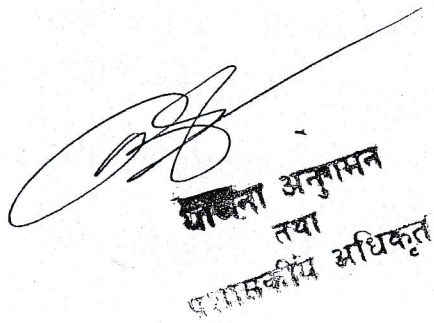 योजना अनुगमन
तथा
प्रशासकीय अधिकृत